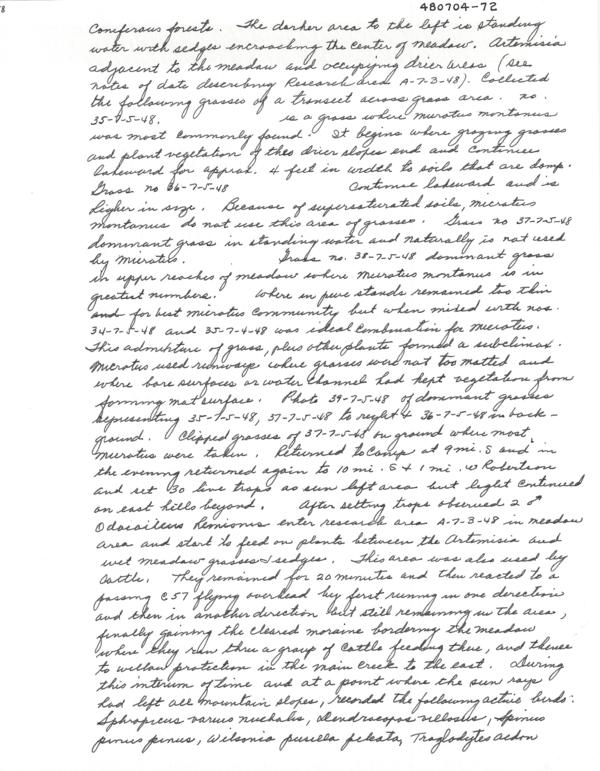 8
480704-72
Coniferous forests. The darker area to the left is standing
water with sedges encroaching the center of meadow. Artemisia
adjacent to the meadow and occupying drier areas (see
notes of date describing Research area A-7-3-48). Collected
the following grasses of a transect across grass area. no.
35-7-5-48. is a grass where microtus montanus
was most commonly found. It begins where grazing grasses
and plant vegetation of the drier slopes end and continues
lakeward for approx. 4 feet in width to soils that are damp.
Grass no 36-7-5-48 Continue lakeward and is
higher in size. Because of supersaturated soils, microtus
montanus do not use this area of grasses. Grass no 37-7-5-48
dominant grass in standing water and naturally is not used
by microtus. Grass no. 38-7-5-48 dominant grass
in upper reaches of meadow where microtus montanus is in
greatest numbers. Where in pure stands remained too thin
and for best microtus community but when mixed with nos.
34-7-5-48 and 35-7-4-48 was ideal combination for microtus.
This admixture of grass, plus other plants formed a subclimax.
Microtus used runways where grasses were not too matted and
where bare surfaces or water channel had kept vegetation from
forming mat surface. Photo 39-7-5-48 of dominant grasses
representing 35-7-5-48, 37-7-5-48 to right & 36-7-5-48 in back-
ground. Clipped grasses of 37-7-5-48 on ground where most
microtus were taken. Returned to camp at 9 mi. S and in
the evening returned again to 10 mi. S & 1 mi. W Robertson
and set 30 live traps as sun left area but light continued
on east hills beyond. After setting traps observed 2 ♂
Odocoileus hemionus enter research area A-7-3-48 in meadow
area and start to feed on plants between the Artemisia and
wet meadow grasses & sedges. This area was also used by
cattle. They remained for 20 minutes and then reacted to a
passing C57 flying overhead by first running in one direction
and then in another direction but still remaining in the area,
finally gaining the cleared moraine bordering the meadow
where they ran thru a group of cattle feeding there, and thence
to willow protection in the main creek to the east. During
this interum of time and at a point where the sun rays
had left all mountain slopes, recorded the following active birds:
Sphrapicus varius nuchalis, Dendrocopos villosus, Spinus
pinus pinus, Wilsonia pusilla pileata, Troglodytes aedon